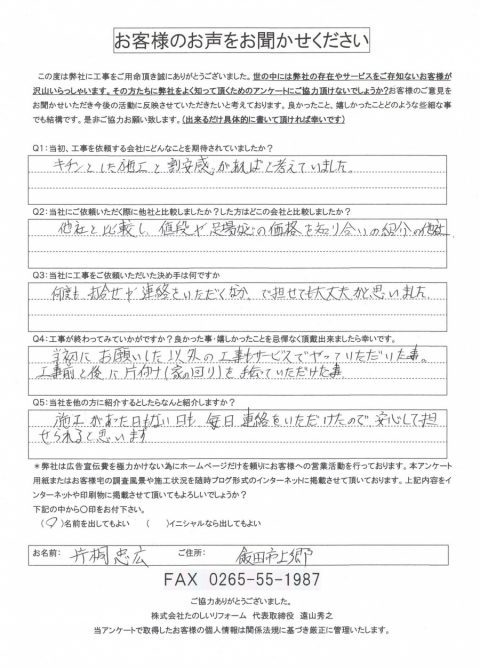 お客様のお声をお聞かせください
この度は弊社に工事をご用命頂き誠にありがとうございました。世の中には弊社の存在やサービスをご存知ないお客様が
沢山いらっしゃいます。その方たちに弊社をよく知って頂くためのアンケートにご協力頂けないでしょうか?お客様のご意見を
お聞かせいただき今後の活動に反映させていただきたいと考えております。良かったこと、嬉しかったことどのような些細な事
でも結構です。是非ご協力お願い致します。(出来るだけ具体的に書いて頂ければ幸いです)
Q1:当初、工事を依頼する会社にどんなことを期待されていましたか?
キチンとした施工と割安感が有ればと考えていました。
Q2:当社にご依頼いただく際に他社と比較しましたか?した方はどこの会社と比較しましたか?
他社と比較し、値段や足場の価格を知り合いの紹介の他社
Q3:当社に工事をご依頼いただいた決め手は何ですか
何度も打合せや連絡をいただくなか、で担せても大丈夫かと思いました。
Q4:工事が終わってみていかがですか?良かった事・嬉しかったことを忌憚なく頂戴出来ましたら幸いです。
当初にお願いした以外の工事もサービスでやっていただいた事。
工事前と後に片付け(家の回り)を手伝っていただけた事
Q5:当社を他の方に紹介するとしたらなんと紹介しますか?
施工があった日もない日も、毎日連絡をいただけたので安心して担
せられると思います
*弊社は広告宣伝費を極力かけない為にホームページだけを頼りにお客様への営業活動を行っております。本アンケート
用紙またはお客様宅の調査風景や施工状況を随時ブログ形式のインターネットに掲載させて頂いております。上記内容をイ
ンターネットや印刷物に掲載させて頂いてもよろしいでしょうか?
下記の中から〇印をお付下さい。
(〇)名前を出してもよい ( )イニシャルなら出してもよい
お名前: 片桐忠広 ご住所: 飯田市上郷
FAX 0265-55-1987
ご協力ありがとうございました。
株式会社たのしいリフォーム 代表取締役 遠山秀之
当アンケートで取得したお客様の個人情報は関係法規に基づき厳正に管理いたします。